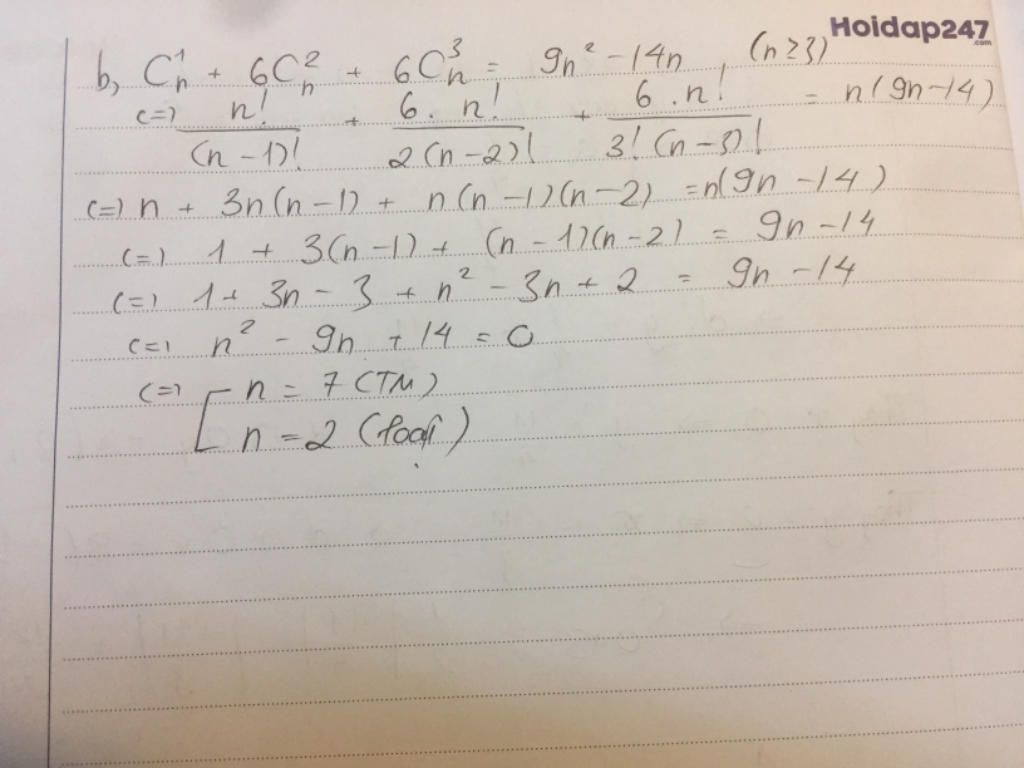 Hoidap247
.com
b, C_n^1 + 6C_n^2 + 6C_n^3 = 9n² - 14n, (n ≥ 3)
(=) n!/(n-1)! + 6.n!/2(n-2)! + 6.n!/3!(n-3)! = n(9n-14)
(=) n + 3n(n-1) + n(n-1)(n-2) = n(9n-14)
(=) 1 + 3(n-1) + (n-1)(n-2) = 9n-14
(=) 1 + 3n - 3 + n² - 3n + 2 = 9n - 14
(=) n² - 9n + 14 = 0
(=) [ n = 7 (TM)
n = 2 (loại)